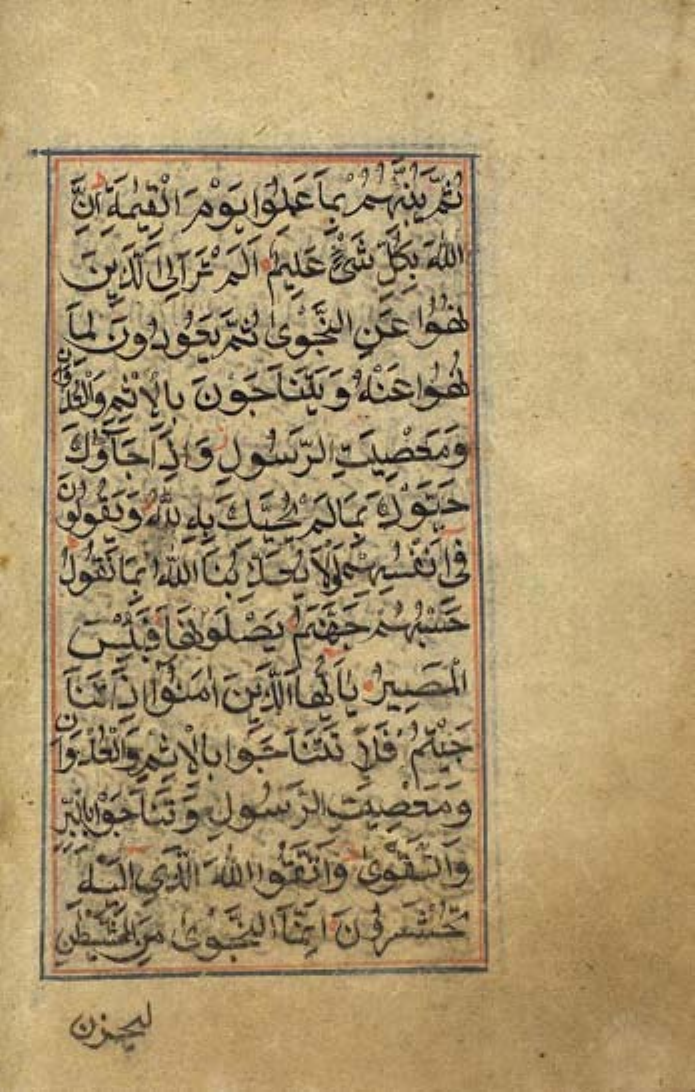 ثُمَّ يُنَبِّئُهُمْ بِمَا عَمِلُوا يَوْمَ الْقِيٰمَةِ اِنَّ
اللّٰهَ بِكُلِّ شَيْءٍ عَلِيمٌ اَلَمْ تَرَ اِلَى الَّذِينَ
نُهُوا عَنِ النَّجْوٰى ثُمَّ يَعُودُونَ لِمَا
نُهُوا عَنْهُ وَيَتَنَاجَوْنَ بِالْاِثْمِ وَالْعُدْوَانِ
وَمَعْصِيَتِ الرَّسُولِ وَاِذَا جَاؤُكَ
حَيَّوْكَ بِمَا لَمْ يُحَيِّكَ بِهِ اللّٰهُ وَيَقُولُونَ
فِى اَنْفُسِهِمْ لَوْلَا يُعَذِّبُنَا اللّٰهُ بِمَا نَقُولُ
حَسْبُهُمْ جَهَنَّمُ يَصْلَوْنَهَا فَبِئْسَ
الْمَصِيرُ يَا اَيُّهَا الَّذِينَ اٰمَنُوا اِذَا تَنَا
جَيْتُمْ فَلَا تَتَنَاجَوْا بِالْاِثْمِ وَالْعُدْوَانِ
وَمَعْصِيَتِ الرَّسُولِ وَتَنَاجَوْا بِالْبِرِّ
وَالتَّقْوٰى وَاتَّقُوا اللّٰهَ الَّذِي اِلَيْهِ
تُحْشَرُونَ اِنَّمَا النَّجْوٰى مِنَ الشَّيْطٰنِ
ليحزن